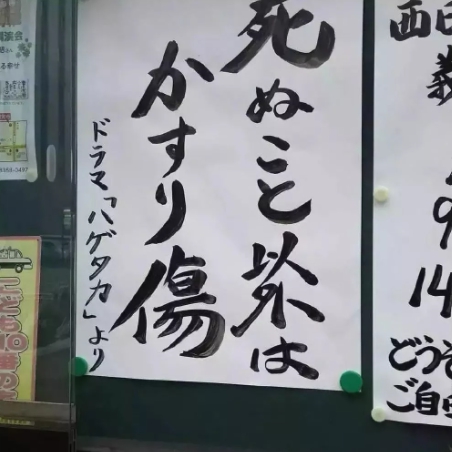 死ぬこと以外は
かすり傷
ドラマ「ハゲタカ」より
9
14
どうぞ
ご自由
こども110番の